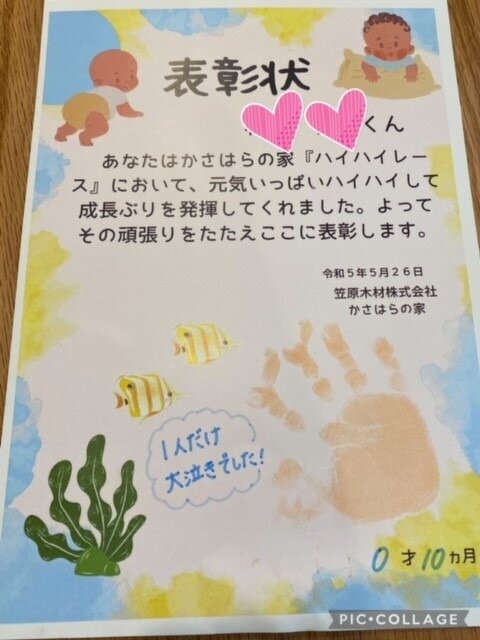 表彰状
くん
あなたはかさはらの家『ハイハイレー
ス』において、元気いっぱいハイハイして
成長ぶりを発揮してくれました。よって
その頑張りをたたえここに表彰します。
令和5年5月26日
笠原木材株式会社
かさはらの家
1人だけ
大泣きでした!
0才10カ月
PIC•COLLAGE